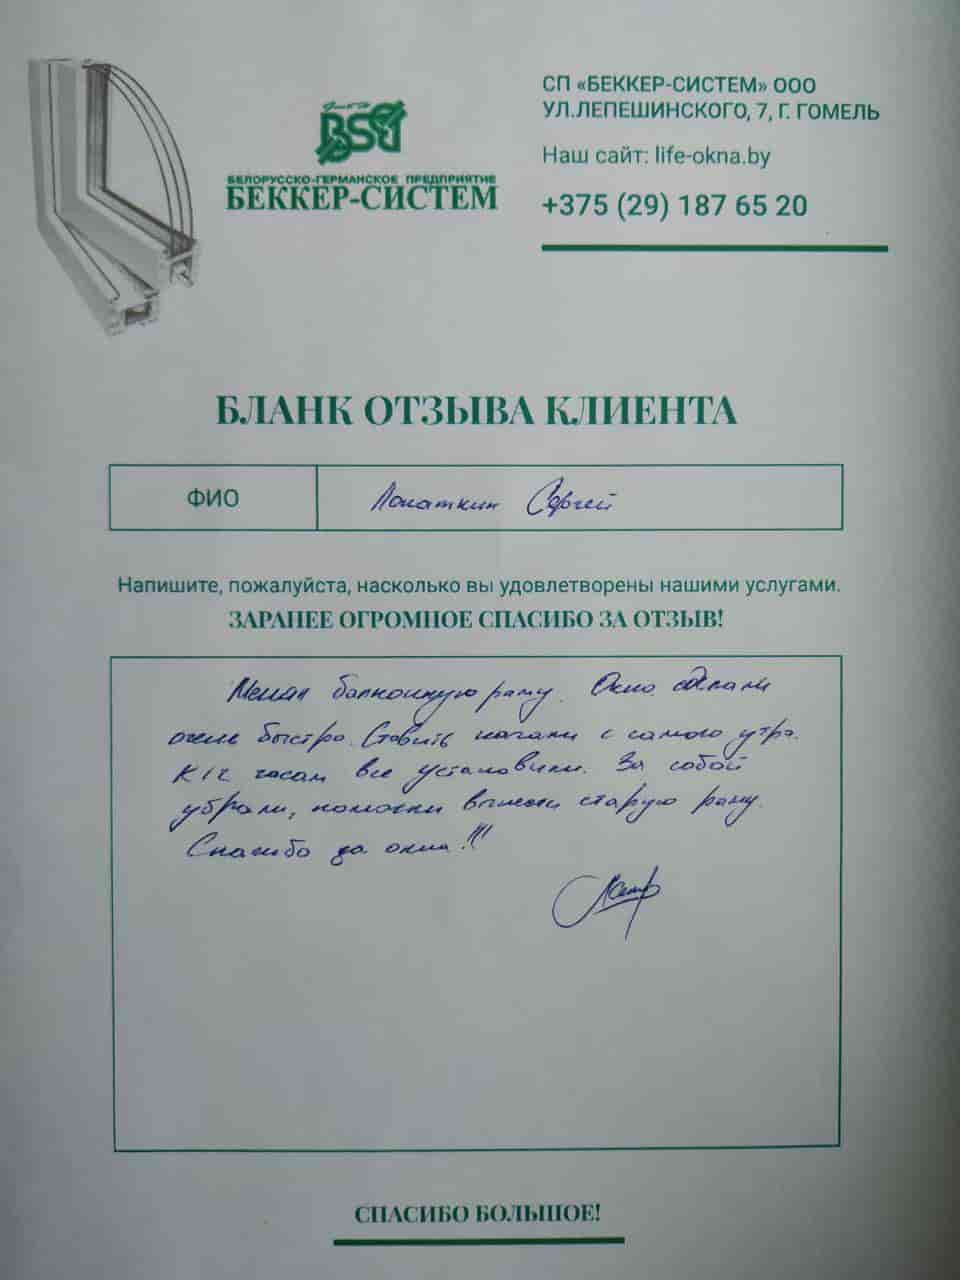 СП «БЕККЕР-СИСТЕМ» ООО
УЛ.ЛЕПЕШИНСКОГО, 7, Г. ГОМЕЛЬ
Наш сайт: life-okna.by
+375 (29) 187 65 20
BSG
БЕЛОРУССКО-ГЕРМАНСКОЕ ПРЕДПРИЯТИЕ
БЕККЕР-СИСТЕМ
БЛАНК ОТЗЫВА КЛИЕНТА
ФИО
Лопаткин Сергей
Напишите, пожалуйста, насколько вы удовлетворены нашими услугами.
ЗАРАНЕЕ ОГРОМНОЕ СПАСИБО ЗА ОТЗЫВ!
Менял балконную раму. Окно сделали
очень быстро. Ставить начали с самого утра.
К 12 часам все установили. За собой
убрали, помогли вынести старую раму.
Спасибо за окна!!!
СПАСИБО БОЛЬШОЕ!